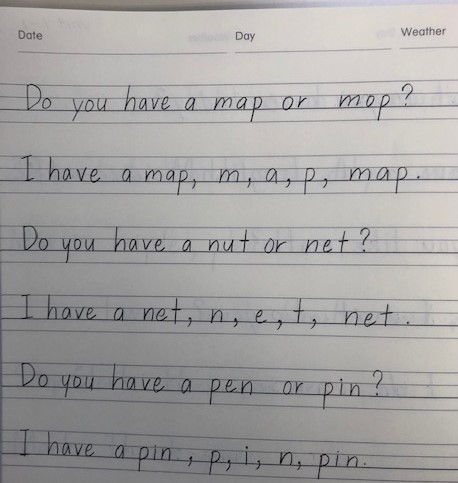 Date Day Weather
Do you have a map or mop?
I have a map, m, a, p, map.
Do you have a nut or net?
I have a net, n, e, t, net.
Do you have a pen or pin?
I have a pin, p, i, n, pin.